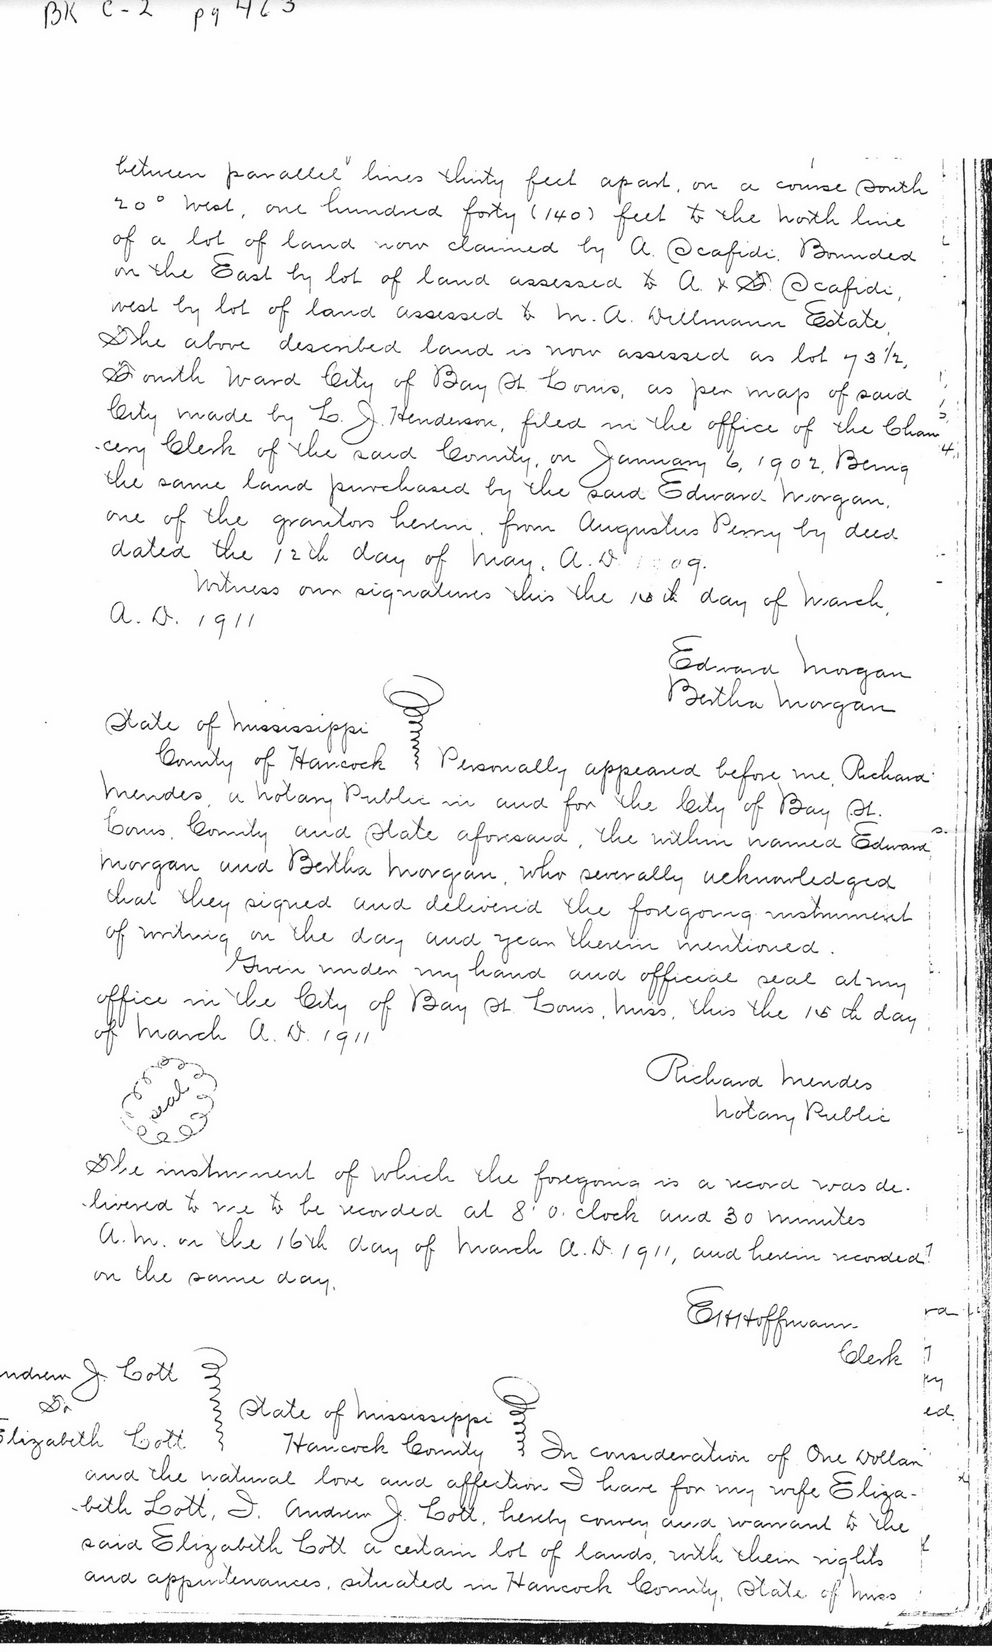 BK C-2 pg 463
between parallel lines thirty feet apart, on a course South
20° West, one hundred forty (140) feet to the north line
of a lot of land now claimed by A. Scafidi. Bounded
on the East by lot of land assessed to A. & F. Scafidi,
west by lot of land assessed to M. A. Willmann Estate,
The above described land is now assessed as lot 73½,
Fourth Ward City of Bay St. Louis, as per map of said
City made by E. J. Henderson, filed in the office of the Chan
-cery Clerk of the said County, on January 6, 1902, Being
the same land purchased by the said Edward Morgan,
one of the grantors herein, from Augustus Perry by deed
dated the 12th day of May, A.D. 1909.
Witness our signatures this the 15th day of March,
A. D. 1911
Edward Morgan
Bertha Morgan
State of Mississippi
County of Hancock Personally appeared before me, Richard
Mendes, a Notary Public in and for the City of Bay St.
Louis, County and State aforesaid, the within named Edward
Morgan and Bertha Morgan, who severally acknowledged
that they signed and delivered the foregoing instrument
of writing on the day and year therein mentioned.
Given under my hand and official seal at my
office in the City of Bay St. Louis, Miss, this the 15th day
of March A. D. 1911
Seal
Richard Mendes
Notary Public
The instrument of which the foregoing is a record was de-
-livered to me to be recorded at 8' o'clock and 30 minutes
A.M. on the 16th day of March A.D. 1911, and herein recorded
on the same day.
E H Hoffmann
Clerk
ndrew J. Lott
To
Elizabeth Lott
State of Mississippi
Hancock County In consideration of One Dollar
and the natural love and affection I have for my wife Eliza-
-beth Lott, I, Andrew J. Lott, hereby convey and warrant to the
said Elizabeth Lott a certain lot of lands, with their rights
and appurtenances, situated in Hancock County, State of Miss